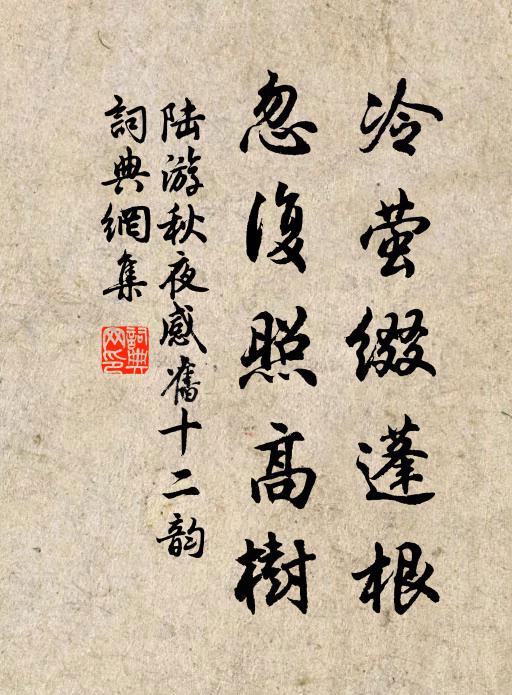 冷萤缀蓬根
忽复照高樹
陆游秋夜感舊十二韵
詞典網集
詞典网印